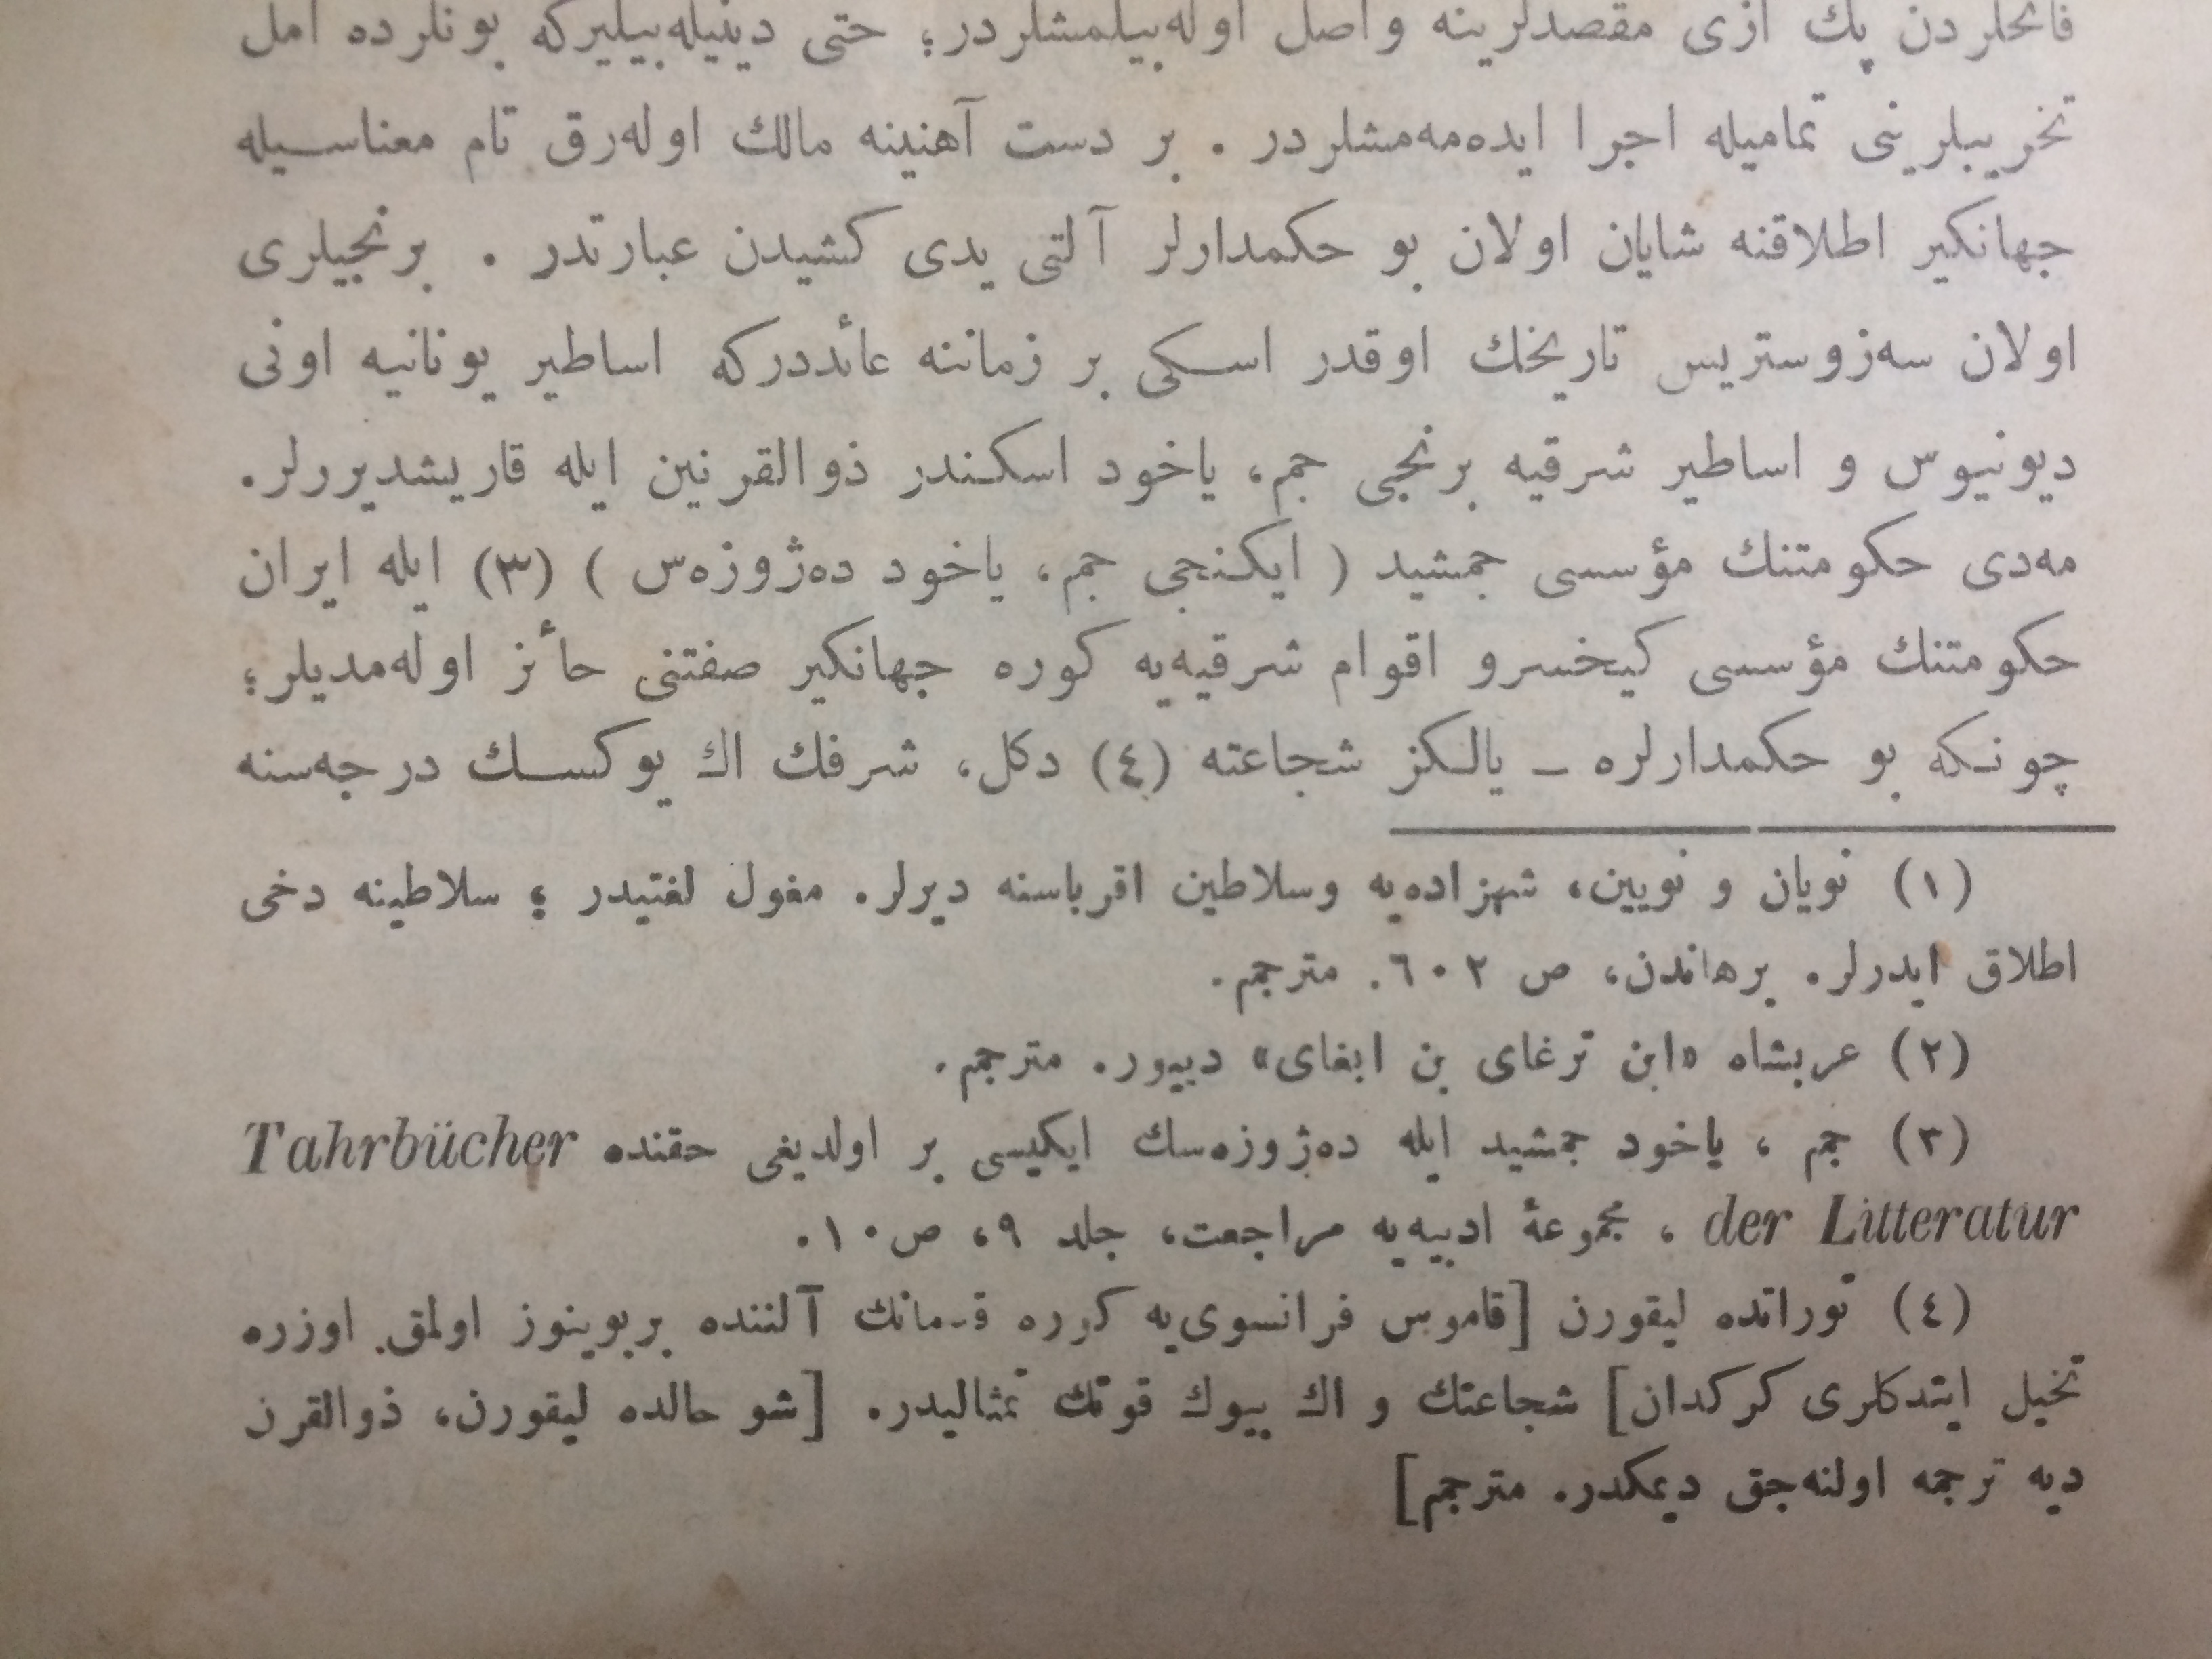 فاتحلردن پك ازی مقصدلرینه واصل اوله‌بیلمشلردر؛ حتی دینیله‌بیلیرکه بونلرده امل
تخریبلرینی تمامیله اجرا ایده‌مه‌مشلردر . بر دست آهنینه مالك اوله‌رق تام معناسیله
جهانکیر اطلاقنه شایان اولان بو حکمدارلر آلتی یدی کشیدن عبارتدر . برنجیلری
اولان سه‌زوستریس تاریخك اوقدر اسکی بر زماننه عائددرکه اساطیر یونانیه اونی
دیونیوس و اساطیر شرقیه برنجی جم، یاخود اسکندر ذوالقرنین ایله قاریشدیررلر.
مه‌دی حکومتنك مؤسسی جمشید ( ایکنجی جم، یاخود ده‌ژوزه‌س ) (۳) ایله ایران
حکومتنك مؤسسی کیخسرو اقوام شرقیه‌یه کوره جهانکیر صفتنی حائز اوله‌مدیلر؛
چونکه بو حکمدارلره ــ یالکز شجاعته (٤) دکل، شرفك اك یوکسك درجه‌سنه
(۱) نویان و نویین، شهزاده‌یه وسلاطین اقرباسنه دیرلر. مغول لغتیدر ؛ سلاطینه دخی
اطلاق ایدرلر. برهاندن، ص ٦٠٢. مترجم.
(۲) عربشاه «ابن ترغای بن ابغای» دییور. مترجم.
(۳) جم ، یاخود جمشید ایله ده‌ژوزه‌سك ایکیسی بر اولدیغی حقنده Tahrbücher
der Litteratur ، مجموعۀ ادبیه‌یه مراجعت، جلد ۹، ص ۱۰.
(٤) توراتده لیقورن [قاموس فرانسوی‌یه کوره آلننده بربوینوز اولمق اوزره
تخیل ایتدکلری کرکدان] شجاعتك و اك بیوك قوتك تمثالیدر. [شو حالده لیقورن، ذوالقرن
دیه ترجمه اولنه‌جق دیمکدر. مترجم]